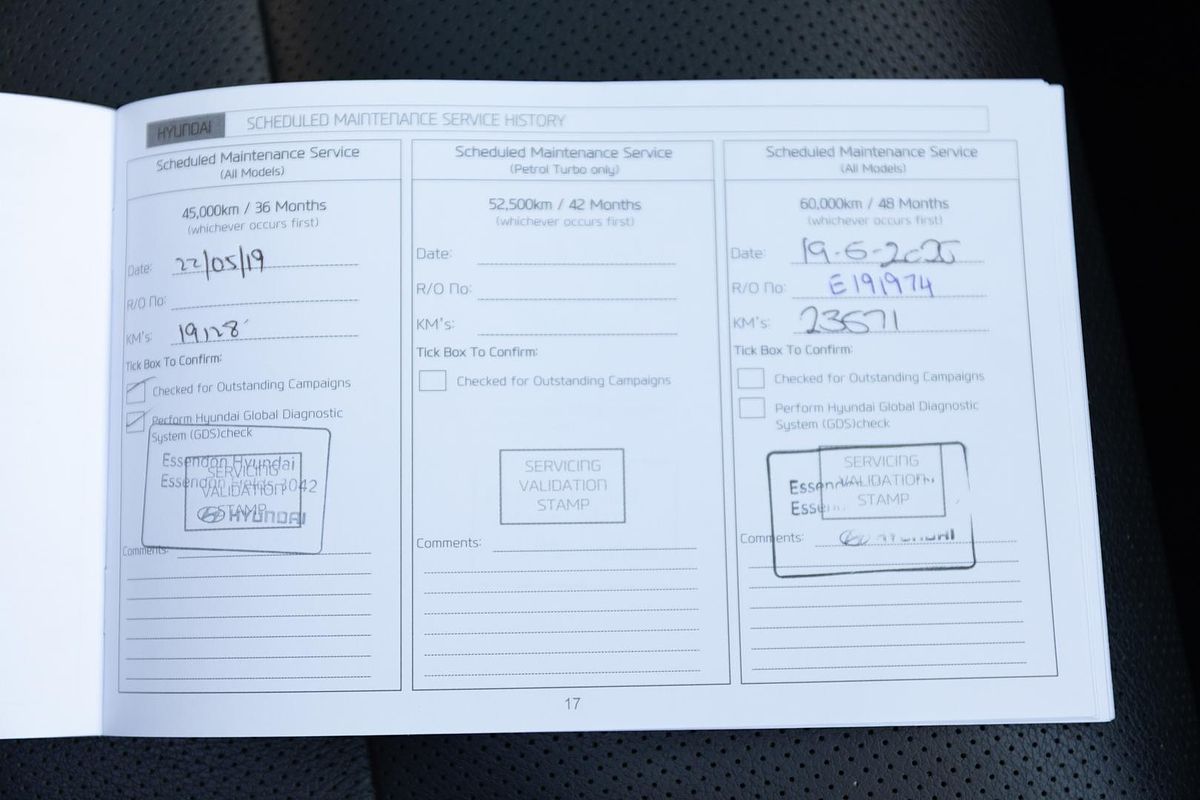 HYUNDAI SCHEDULED MAINTENANCE SERVICE HISTORY
Scheduled Maintenance Service
(All Models)
45,000km / 36 Months
(whichever occurs first)
Date: 22/05/19
R/O No:
KM's: 19128
Tick Box To Confirm:
Checked for Outstanding Campaigns
Perform Hyundai Global Diagnostic
System (GDS)check
Essendon Hyundai
Essendon Fields 3042
HYUNDAI
SERVICING
VALIDATION
STAMP
Comments:
Scheduled Maintenance Service
(Petrol Turbo only)
52,500km / 42 Months
(whichever occurs first)
Date:
R/O No:
KM's:
Tick Box To Confirm:
Checked for Outstanding Campaigns
SERVICING
VALIDATION
STAMP
Comments:
Scheduled Maintenance Service
(All Models)
60,000km / 48 Months
(whichever occurs first)
Date: 19-6-2020
R/O No: E191974
KM's: 23671
Tick Box To Confirm:
Checked for Outstanding Campaigns
Perform Hyundai Global Diagnostic
System (GDS)check
SERVICING
VALIDATION
STAMP
Comments:
17